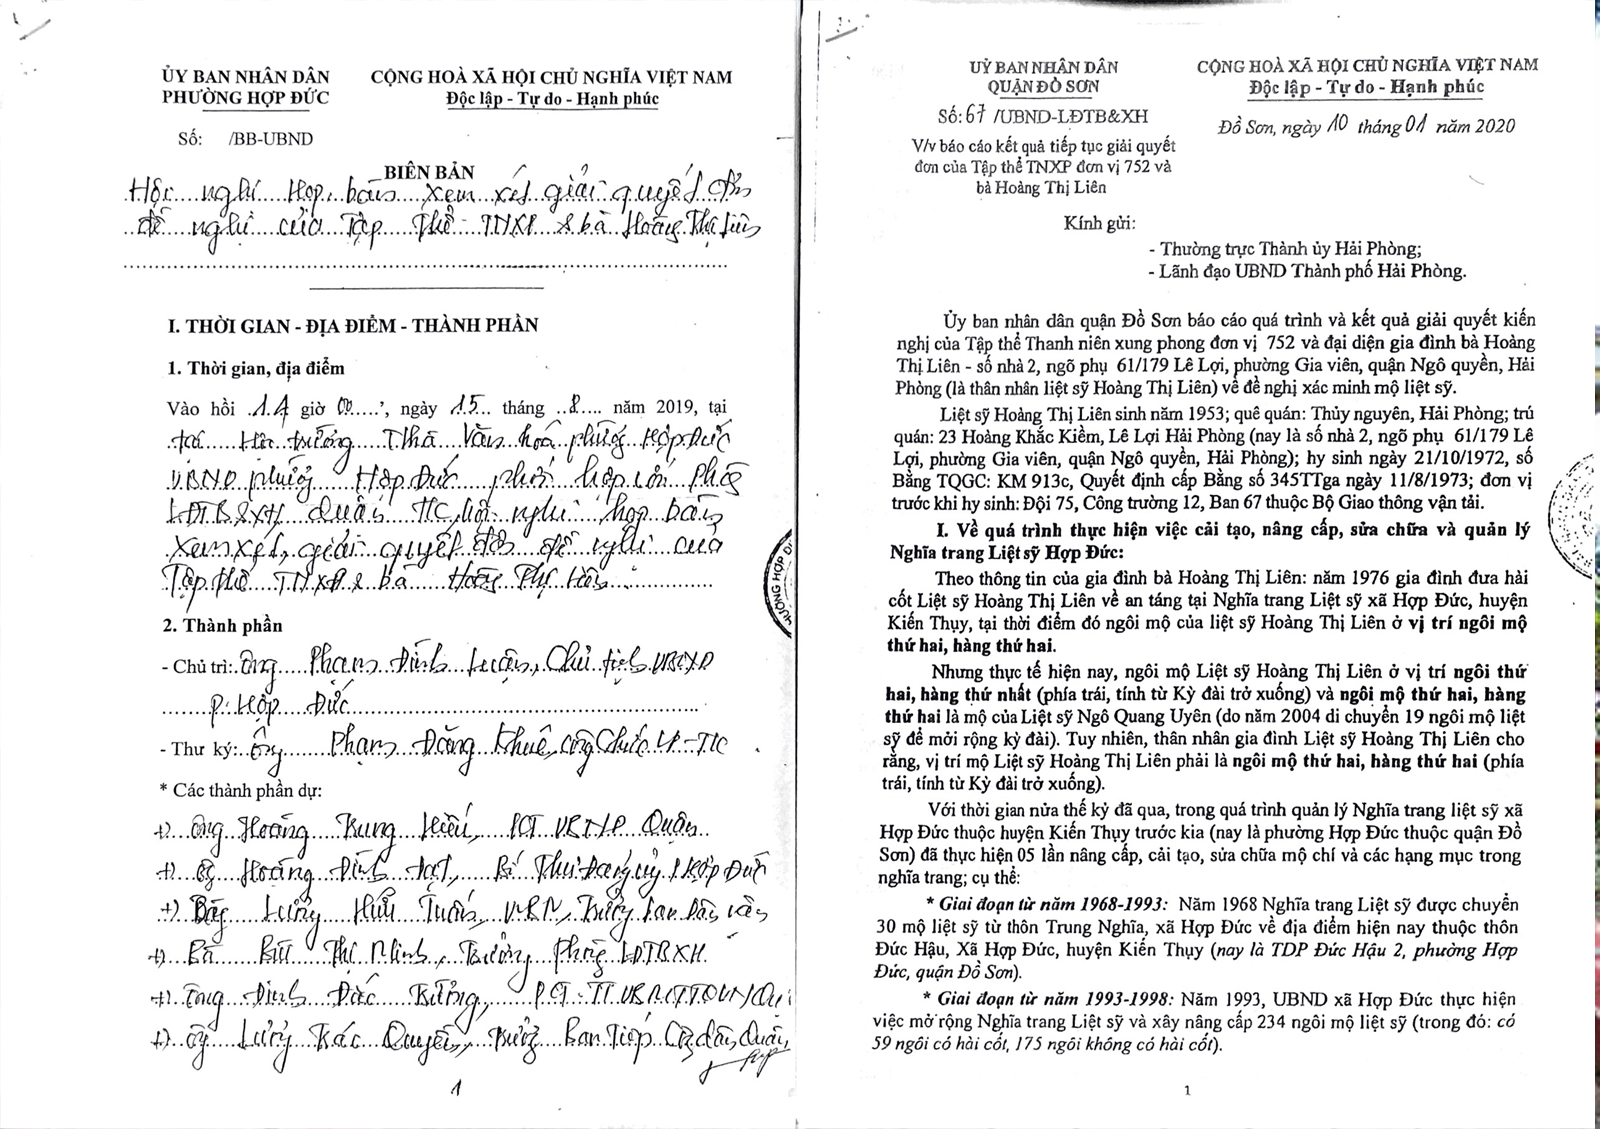 ỦY BAN NHÂN DÂN
PHƯỜNG HỢP ĐỨC
CỘNG HOÀ XÃ HỘI CHỦ NGHĨA VIỆT NAM
Độc lập - Tự do - Hạnh phúc
Số: /BB-UBND
BIÊN BẢN
Hội nghị Họp bàn xem xét giải quyết đơn
đề nghị của Tập Thể TNXP & bà Hoàng Thị Liên
I. THỜI GIAN - ĐỊA ĐIỂM - THÀNH PHẦN
1. Thời gian, địa điểm
Vào hồi 14 giờ 00', ngày 15 tháng 8 năm 2019, tại
tại Hội trường Nhà Văn hoá phường Hợp Đức
UBND phường Hợp Đức phối hợp với Phòng
LĐTB&XH Quận TC hội nghị họp bàn
xem xét, giải quyết đơn đề nghị của
Tập thể TNXP & bà Hoàng Thị Liên
2. Thành phần
- Chủ trì: ông Phạm Đình Luận, Chủ tịch UBND
P. Hợp Đức
- Thư ký: ông Phạm Đăng Khuê, công chức VP-TK
* Các thành phần dự:
+) ông Hoàng Trung Hiếu, PCT UBND Quận
+) ông Hoàng Đình Đạt, Bí Thư Đảng ủy P Hợp Đức
+) Lương Hữu Tuấn, Trưởng ban Dân vận
+) Bà Bùi Thị Minh, Trưởng phòng LĐTBXH
+) ông Đinh Đức Quận
+) ông Lương Khắc Quyến, Trưởng Ban Tiếp Công dân Quận
1
UỶ BAN NHÂN DÂN
QUẬN ĐỒ SƠN
CỘNG HOÀ XÃ HỘI CHỦ NGHĨA VIỆT NAM
Độc lập - Tự do - Hạnh phúc
Số: 67 /UBND-LĐTB&XH
Đồ Sơn, ngày 10 tháng 01 năm 2020
V/v báo cáo kết quả tiếp tục giải quyết
đơn của Tập thể TNXP đơn vị 752 và
bà Hoàng Thị Liên
Kính gửi:
- Thường trực Thành ủy Hải Phòng;
- Lãnh đạo UBND Thành phố Hải Phòng.
Ủy ban nhân dân quận Đồ Sơn báo cáo quá trình và kết quả giải quyết kiến
nghị của Tập thể Thanh niên xung phong đơn vị 752 và đại diện gia đình bà Hoàng
Thị Liên - số nhà 2, ngõ phụ 61/179 Lê Lợi, phường Gia viên, quận Ngô quyền, Hải
Phòng (là thân nhân liệt sỹ Hoàng Thị Liên) về đề nghị xác minh mộ liệt sỹ.
Liệt sỹ Hoàng Thị Liên sinh năm 1953; quê quán: Thủy nguyên, Hải Phòng; trú
quán: 23 Hoàng Khắc Kiềm, Lê Lợi Hải Phòng (nay là số nhà 2, ngõ phụ 61/179 Lê
Lợi, phường Gia viên, quận Ngô quyền, Hải Phòng); hy sinh ngày 21/10/1972, số
Bằng TQGC: KM 913c, Quyết định cấp Bằng số 345TTga ngày 11/8/1973; đơn vị
trước khi hy sinh: Đội 75, Công trường 12, Ban 67 thuộc Bộ Giao thông vận tải.
I. Về quá trình thực hiện việc cải tạo, nâng cấp, sửa chữa và quản lý
Nghĩa trang Liệt sỹ Hợp Đức:
Theo thông tin của gia đình bà Hoàng Thị Liên: năm 1976 gia đình đưa hài
cốt Liệt sỹ Hoàng Thị Liên về an táng tại Nghĩa trang Liệt sỹ xã Hợp Đức, huyện
Kiến Thụy, tại thời điểm đó ngôi mộ của liệt sỹ Hoàng Thị Liên ở vị trí ngôi mộ
thứ hai, hàng thứ hai.
Nhưng thực tế hiện nay, ngôi mộ Liệt sỹ Hoàng Thị Liên ở vị trí ngôi thứ
hai, hàng thứ nhất (phía trái, tính từ Kỳ đài trở xuống) và ngôi mộ thứ hai, hàng
thứ hai là mộ của Liệt sỹ Ngô Quang Uyên (do năm 2004 di chuyển 19 ngôi mộ liệt
sỹ để mở rộng kỳ đài). Tuy nhiên, thân nhân gia đình Liệt sỹ Hoàng Thị Liên cho
rằng, vị trí mộ Liệt sỹ Hoàng Thị Liên phải là ngôi mộ thứ hai, hàng thứ hai (phía
trái, tính từ Kỳ đài trở xuống).
Với thời gian nửa thế kỷ đã qua, trong quá trình quản lý Nghĩa trang liệt sỹ xã
Hợp Đức thuộc huyện Kiến Thụy trước kia (nay là phường Hợp Đức thuộc quận Đồ
Sơn) đã thực hiện 05 lần nâng cấp, cải tạo, sửa chữa mộ chí và các hạng mục trong
nghĩa trang; cụ thể:
* Giai đoạn từ năm 1968-1993: Năm 1968 Nghĩa trang Liệt sỹ được chuyển
30 mộ liệt sỹ từ thôn Trung Nghĩa, xã Hợp Đức về địa điểm hiện nay thuộc thôn
Đức Hậu, Xã Hợp Đức, huyện Kiến Thụy (nay là TDP Đức Hậu 2, phường Hợp
Đức, quận Đồ Sơn).
* Giai đoạn từ năm 1993-1998: Năm 1993, UBND xã Hợp Đức thực hiện
việc mở rộng Nghĩa trang Liệt sỹ và xây nâng cấp 234 ngôi mộ liệt sỹ (trong đó: có
59 ngôi có hài cốt, 175 ngôi không có hài cốt).
1